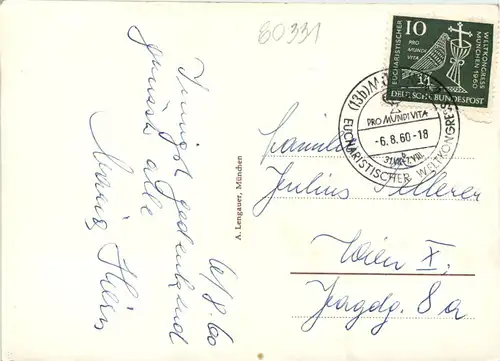 60331
6/8.60
Innigst gedenkend
grüsst alle
Maria
A. Lengauer, München
10
EUCHARISTISCHER
WELTKONGRESS
MÜNCHEN 1960
PRO
MUNDI
VITA
DEUTSCHE BUNDESPOST
(13b)
PRO MUNDI VITA
-6.8.60-18
b
31.VII.-7.VIII.
EUCHARISTISCHER WELTKONGRESS
Familie
Julius
Wien X,
Jagdg. 8a